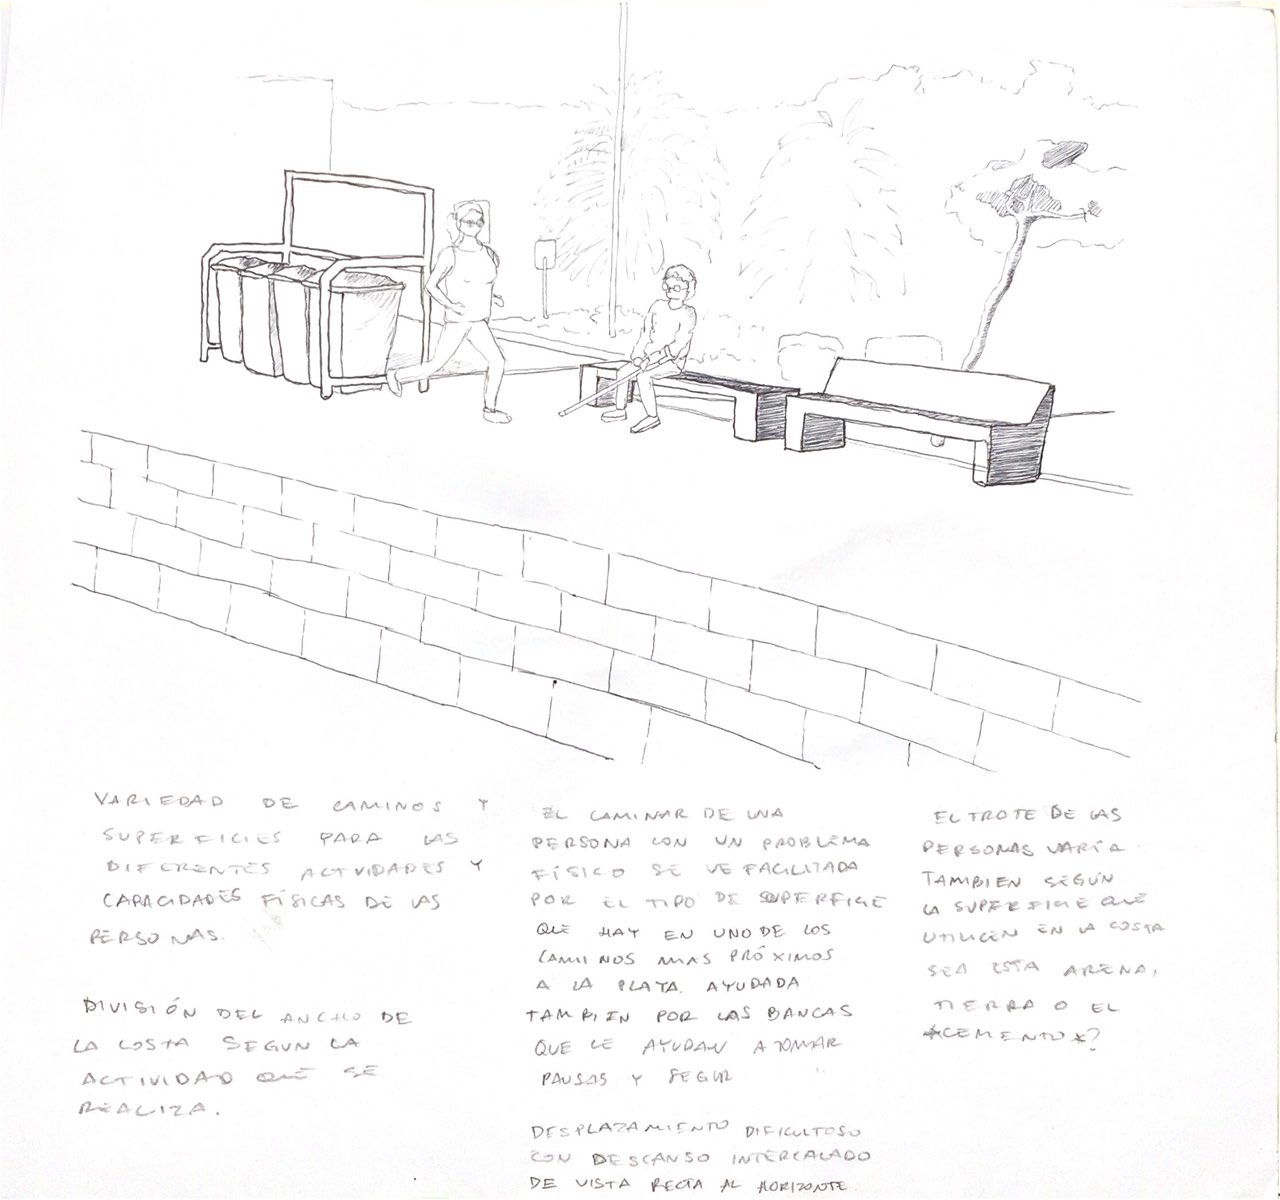 VARIEDAD DE CAMINOS Y
SUPERFICIES PARA LAS
DIFERENTES ACTVIDADES Y
CAPACIDADES FÍSICAS DE LAS
PERSONAS.
DIVISIÓN DEL ANCHO DE
LA COSTA SEGUN LA
ACTIVIDAD QUE SE
REALIZA.
EL CAMINAR DE UNA
PERSONA CON UN PROBLEMA
FÍSICO SE VE FACILITADA
POR EL TIPO DE SUPERFICIE
QUE HAY EN UNO DE LOS
CAMINOS MAS PRÓXIMOS
A LA PLAYA. AYUDADA
TAMBIEN POR LAS BANCAS
QUE LE AYUDAN A TOMAR
PAUSAS Y SEGUIR
DESPLAZAMIENTO DIFICULTOSO
CON DESCANSO INTERCALADO
DE VISTA RECTA AL HORIZONTE
EL TROTE DE LAS
PERSONAS VARÍA
TAMBIEN SEGÚN
LA SUPERFICIE QUE
UTILICEN EN LA COSTA
SEA ESTA ARENA,
TIERRA O EL
CEMENTO*?